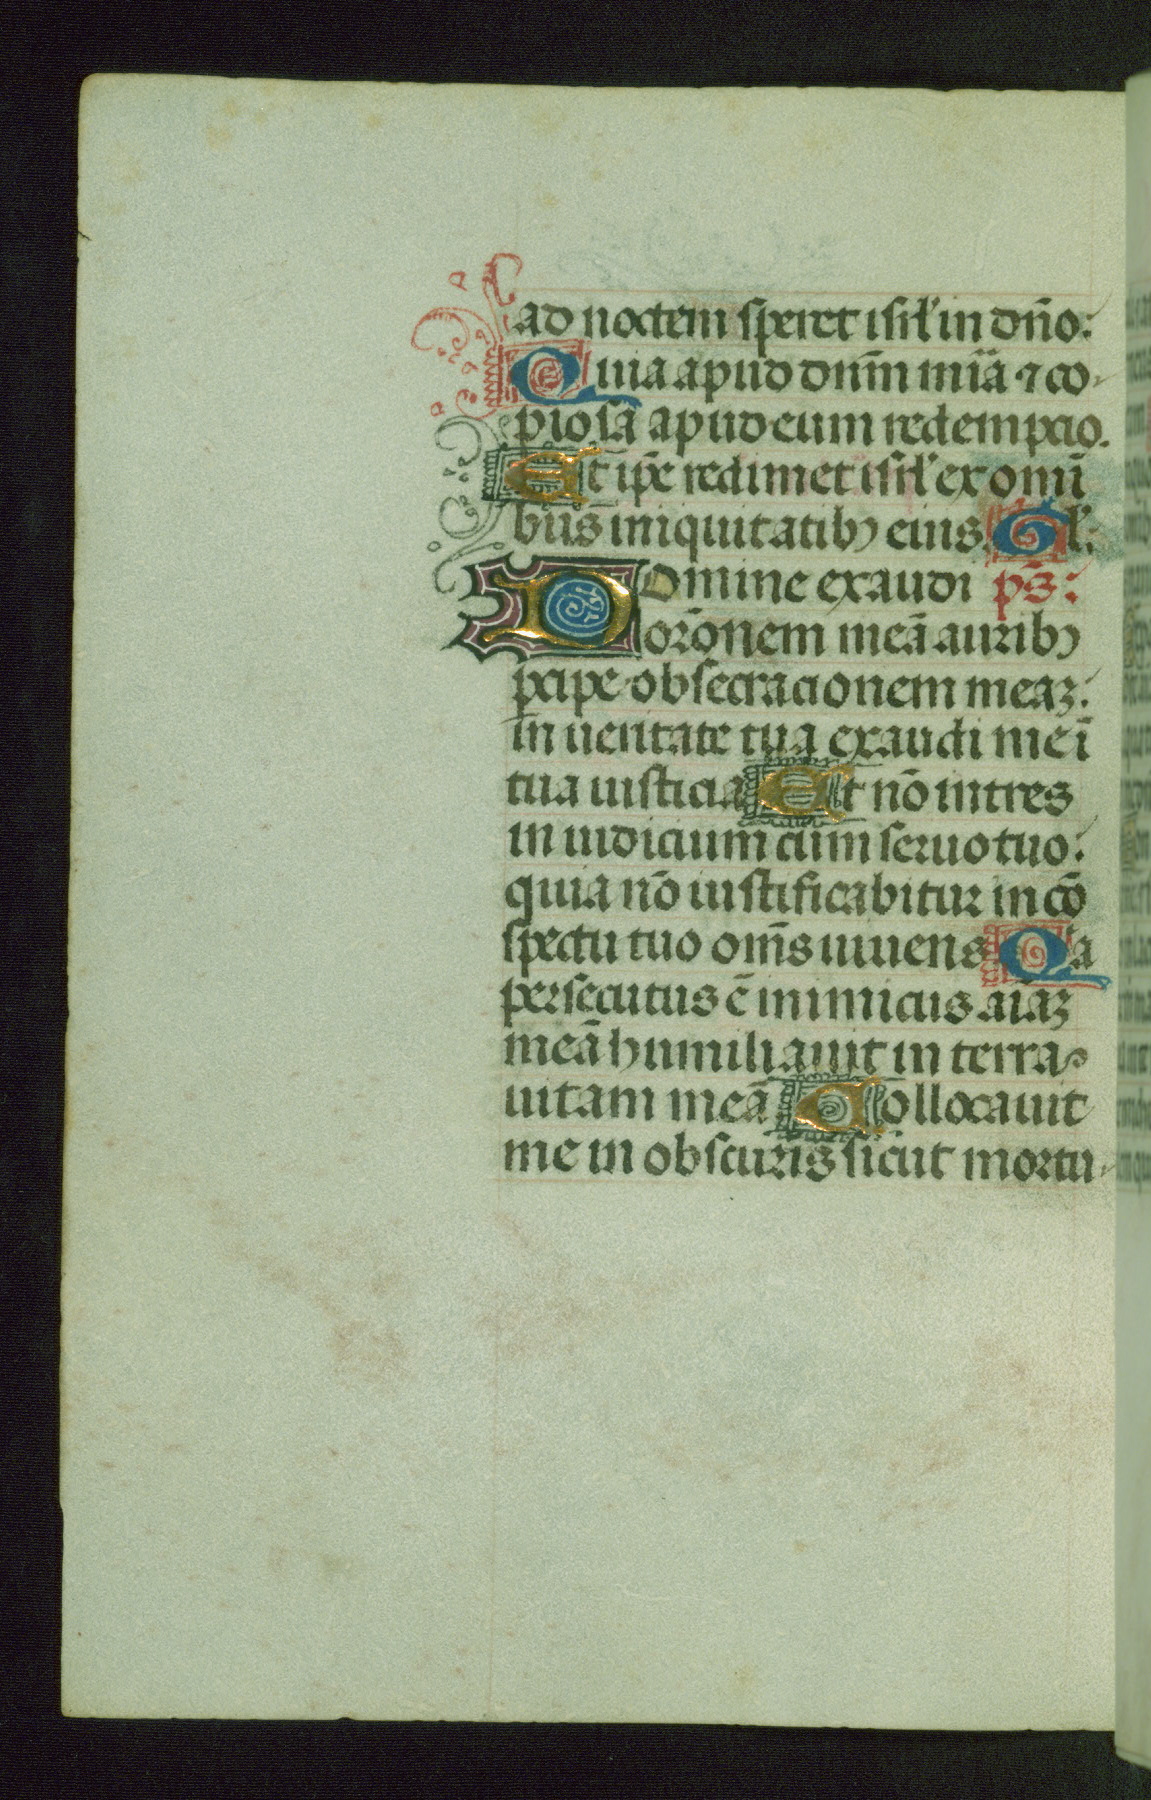 ad noctem speret isrl' in dño:
Quia apud dñm mia ⁊ co-
piosa apud eum redempcio.
Et ipe redimet isrl' ex omī
bus iniquitatibꝯ eius. Gl'.
Domine exaudi ps̄:
orōnem meā auribꝯ
pcipe obsecracionem meaꝫ:
in ueritate tua exaudi me ī
tua iusticia Et nō intres
in iudicium cum seruo tuo:
quia nō iustificabitur in cō
spectu tuo om̄s uiuens Qa
persecutus ē inimicus aiaꝫ
meā humiliauit in terra
uitam meā Collocauit
me in obscuris sicut mortu-